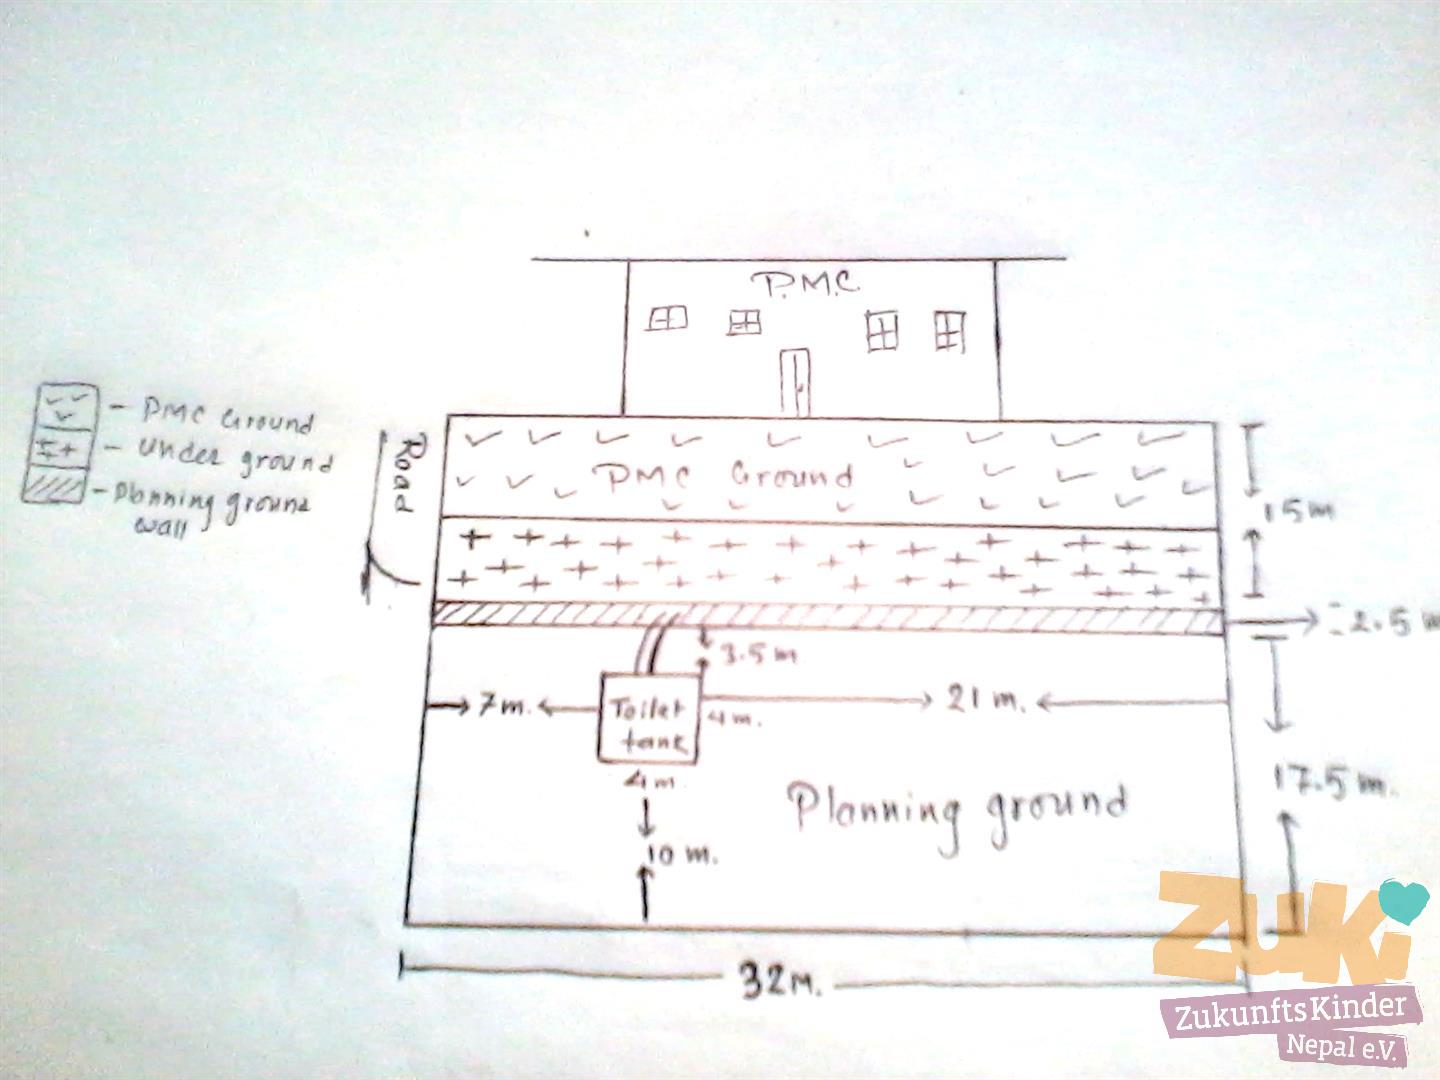 P.M.C
- PMC Ground
- Under ground
- Planning ground
wall
Road
PMC Ground
15m
= 2.5 m
3.5 m
7m.
Toilet
tank
4m.
21 m.
4m
10 m.
Planning ground
17.5 m.
32M.
ZUKi
ZukunftsKinder
Nepal e.V.